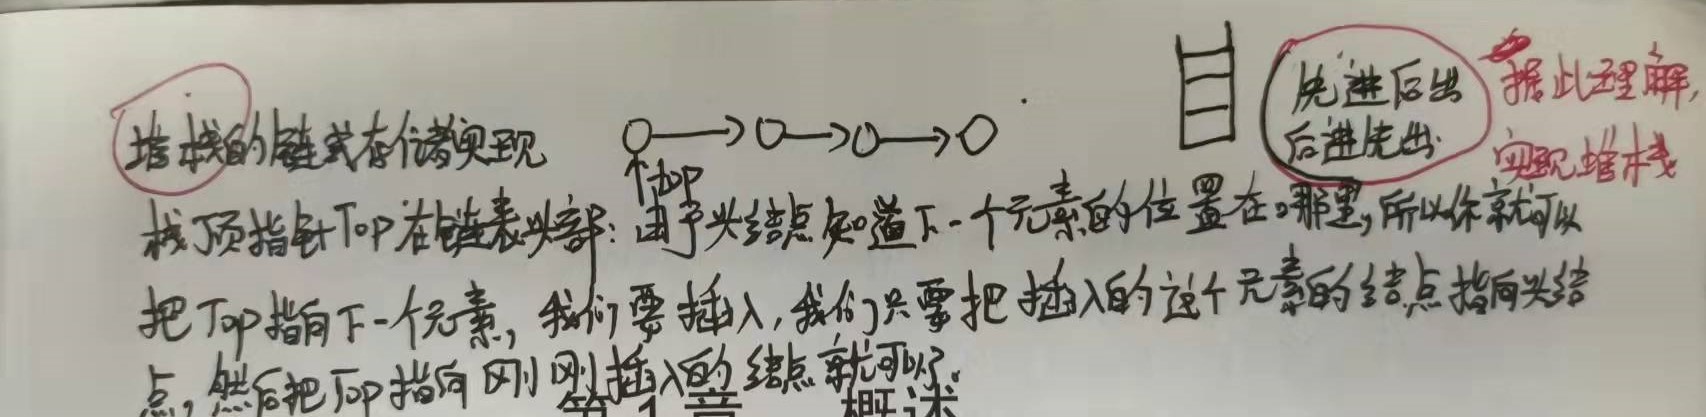 先进后出 据此理解,
后进先出. 实现堆栈
堆栈的链式存储实现
Top
栈顶指针Top在链表头部:由于头结点知道下一个元素的位置在哪里,所以你就可以
把Top指向下一个元素,我们要插入,我们只要把插入的这个元素的结点指向头结
点,然后把Top指向刚刚插入的结点就可以了.
第1章 概述